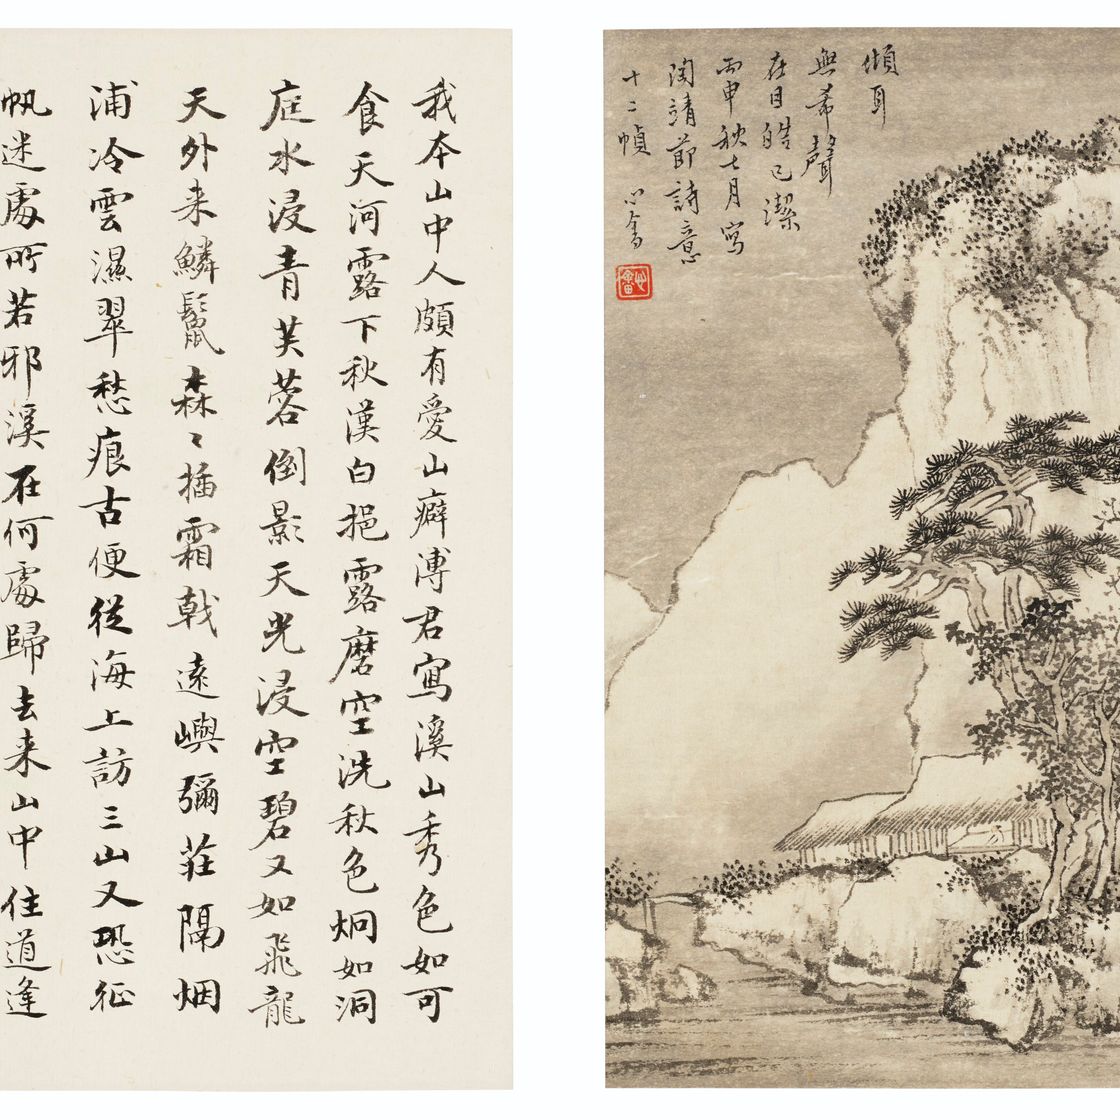 傾耳
無希聲
在目皓已潔
丙申秋七月寫
陶靖節詩意
十二幀 心畬
心畬
我本山中人頗有愛山癖溥君寫溪山秀色如可
食天河露下秋漢白挹露磨空洗秋色炯如洞
庭水浸青芙蓉倒影天光浸空碧又如飛龍
天外来鱗鬣森〻插霜戟遠嶼彌莊隔烟
浦冷雲濕翠愁痕古便從海上訪三山又恐征
帆迷處所若邪溪在何處歸去来山中住道逢